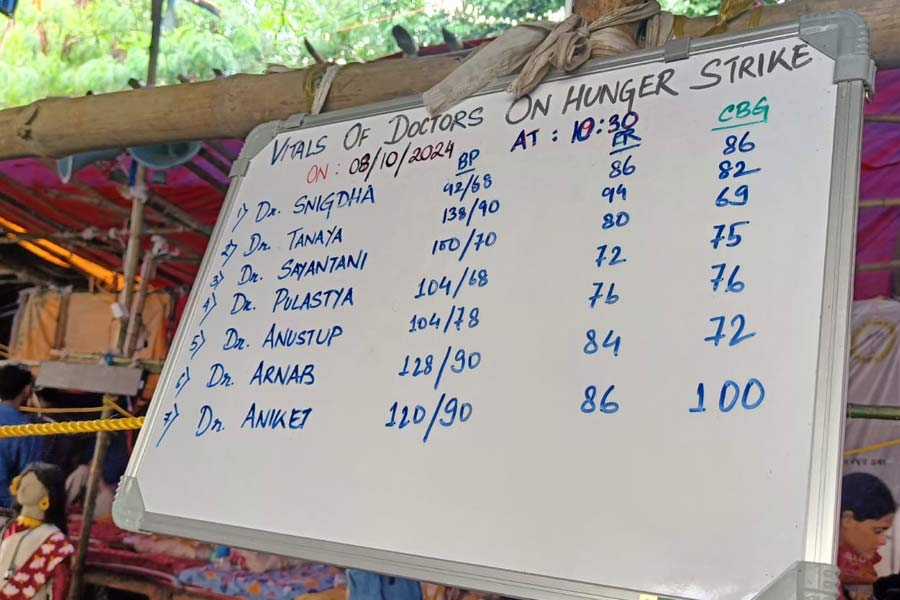 VITALS OF DOCTORS ON HUNGER STRIKE
ON : 08/10/2024 AT : 10:30
BP PR CBG
1) Dr. SNIGDHA 92/68 86 86
2) Dr. TANAYA 138/90 94 82
3) Dr. SAYANTANI 100/70 80 69
4) Dr. PULASTYA 104/68 72 75
5) Dr. ANUSTUP 104/78 76 76
6) Dr. ARNAB 128/90 84 72
7) Dr. ANIKET 120/90 86 100